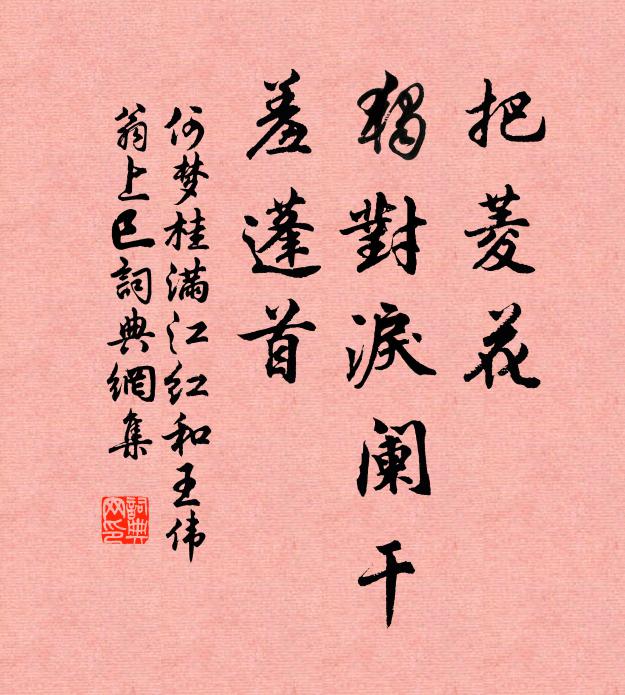 把菱花
獨對淚阑干
羞蓬首
何梦桂满江红和王伟
翁上巳詞典網集
詞典网印